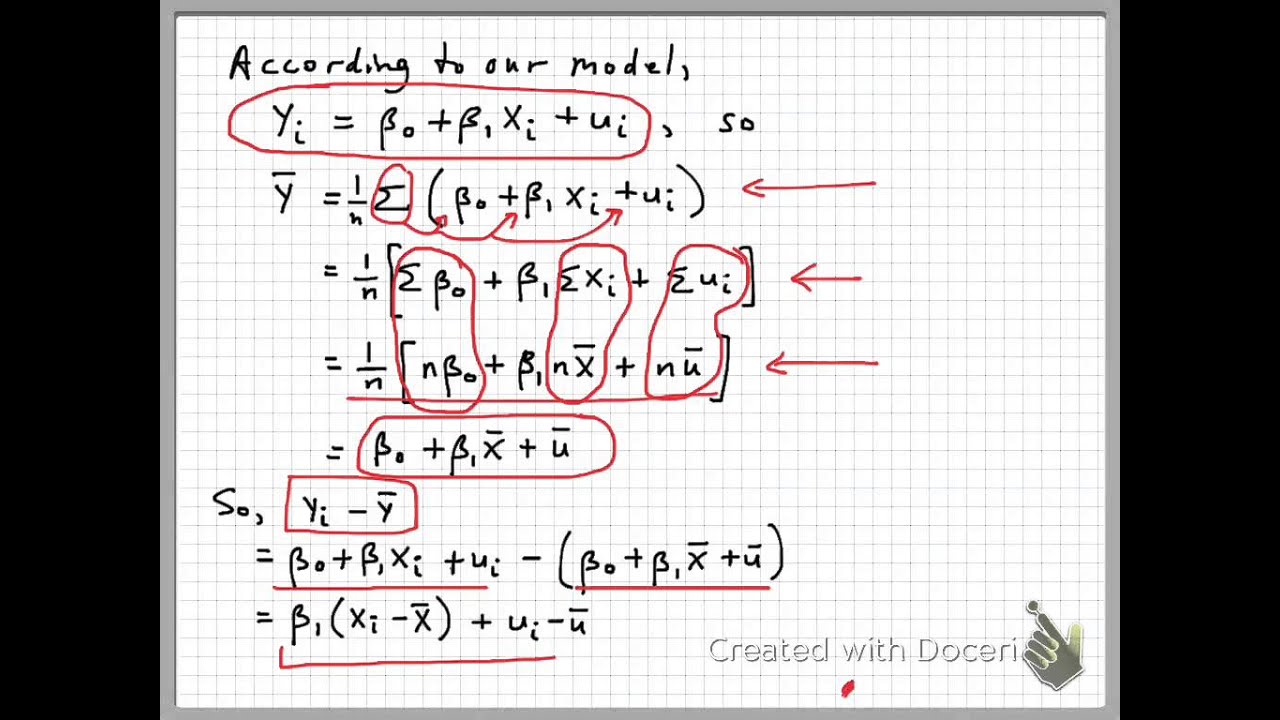 According to our model,
Yᵢ = β₀ + β₁ Xᵢ + uᵢ , so
Y̅ = 1/n Σ ( β₀ + β₁ Xᵢ + uᵢ )
= 1/n [ Σ β₀ + β₁ Σ Xᵢ + Σ uᵢ ]
= 1/n [ n β₀ + β₁ n X̅ + n u̅ ]
= β₀ + β₁ X̅ + u̅
So, Yᵢ − Y̅
= β₀ + β₁ Xᵢ + uᵢ − ( β₀ + β₁ X̅ + u̅ )
= β₁ ( Xᵢ − X̅ ) + uᵢ − u̅
Created with Doceri